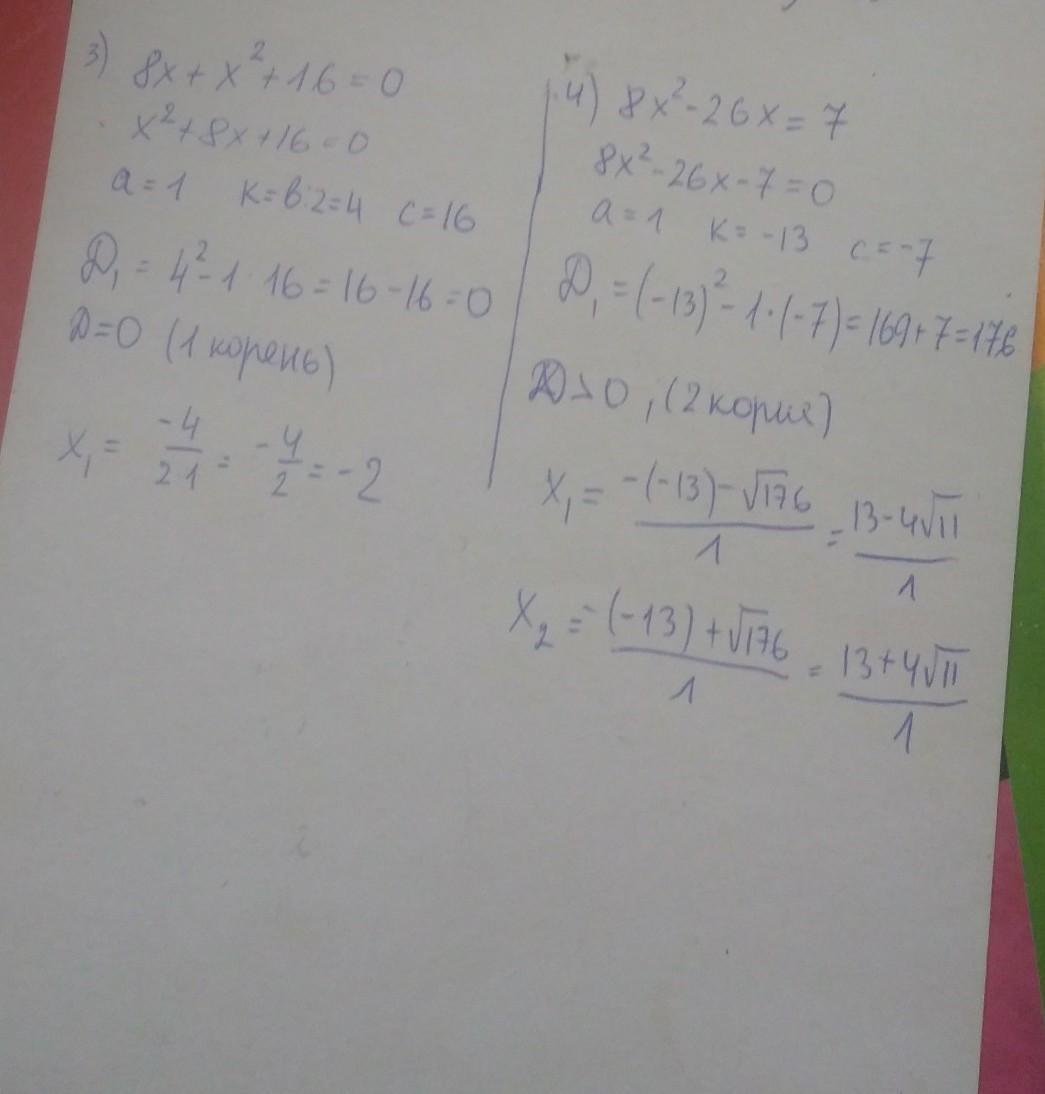 3) 8x + x² + 16 = 0
x² + 8x + 16 = 0
a = 1 к = в:2 = 4 c = 16
D₁ = 4² - 1 · 16 = 16 - 16 = 0
D = 0 (1 корень)
x₁ = -4/2·1 = -4/2 = -2
4) 8x² - 26x = 7
8x² - 26x - 7 = 0
a = 1 к = -13 c = -7
D₁ = (-13)² - 1 · (-7) = 169 + 7 = 176
D > 0, (2 корня)
x₁ = -(-13) - √176 / 1 = 13 - 4√11 / 1
x₂ = -(-13) + √176 / 1 = 13 + 4√11 / 1